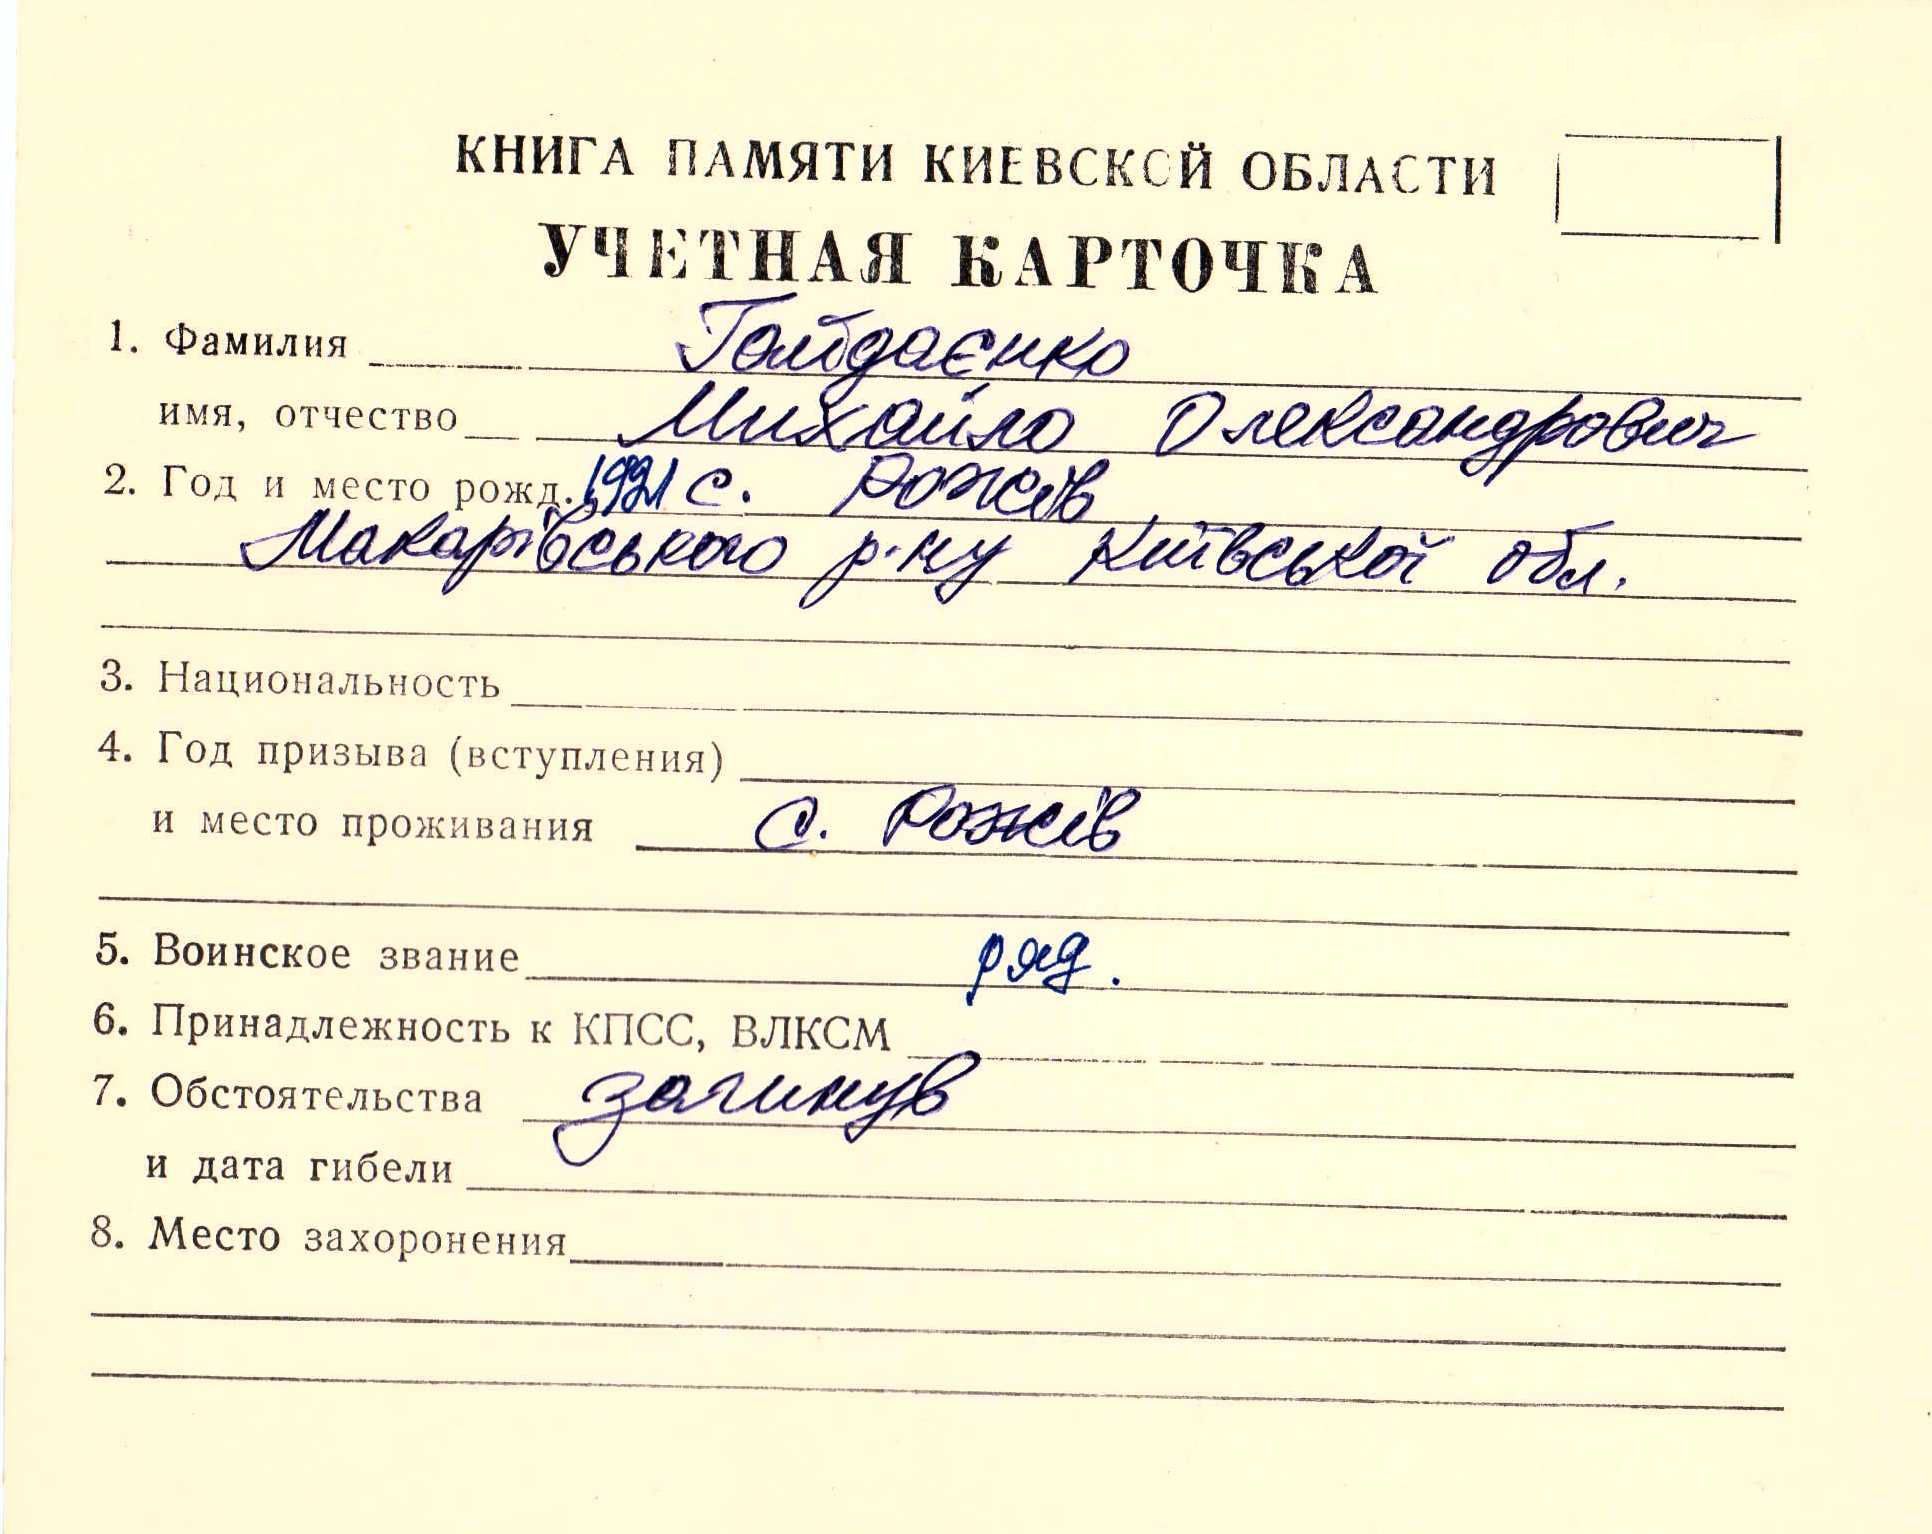 КНИГА ПАМЯТИ КИЕВСКОЙ ОБЛАСТИ
УЧЕТНАЯ КАРТОЧКА
1. Фамилия Гайдаєнко
имя, отчество Михайло Олександрович
2. Год и место рожд. 1921 с. Рожів
Макарівського р-ну Київської обл.
3. Национальность
4. Год призыва (вступления)
и место проживания с. Рожів
5. Воинское звание ряд.
6. Принадлежность к КПСС, ВЛКСМ
7. Обстоятельства загинув
и дата гибели
8. Место захоронения